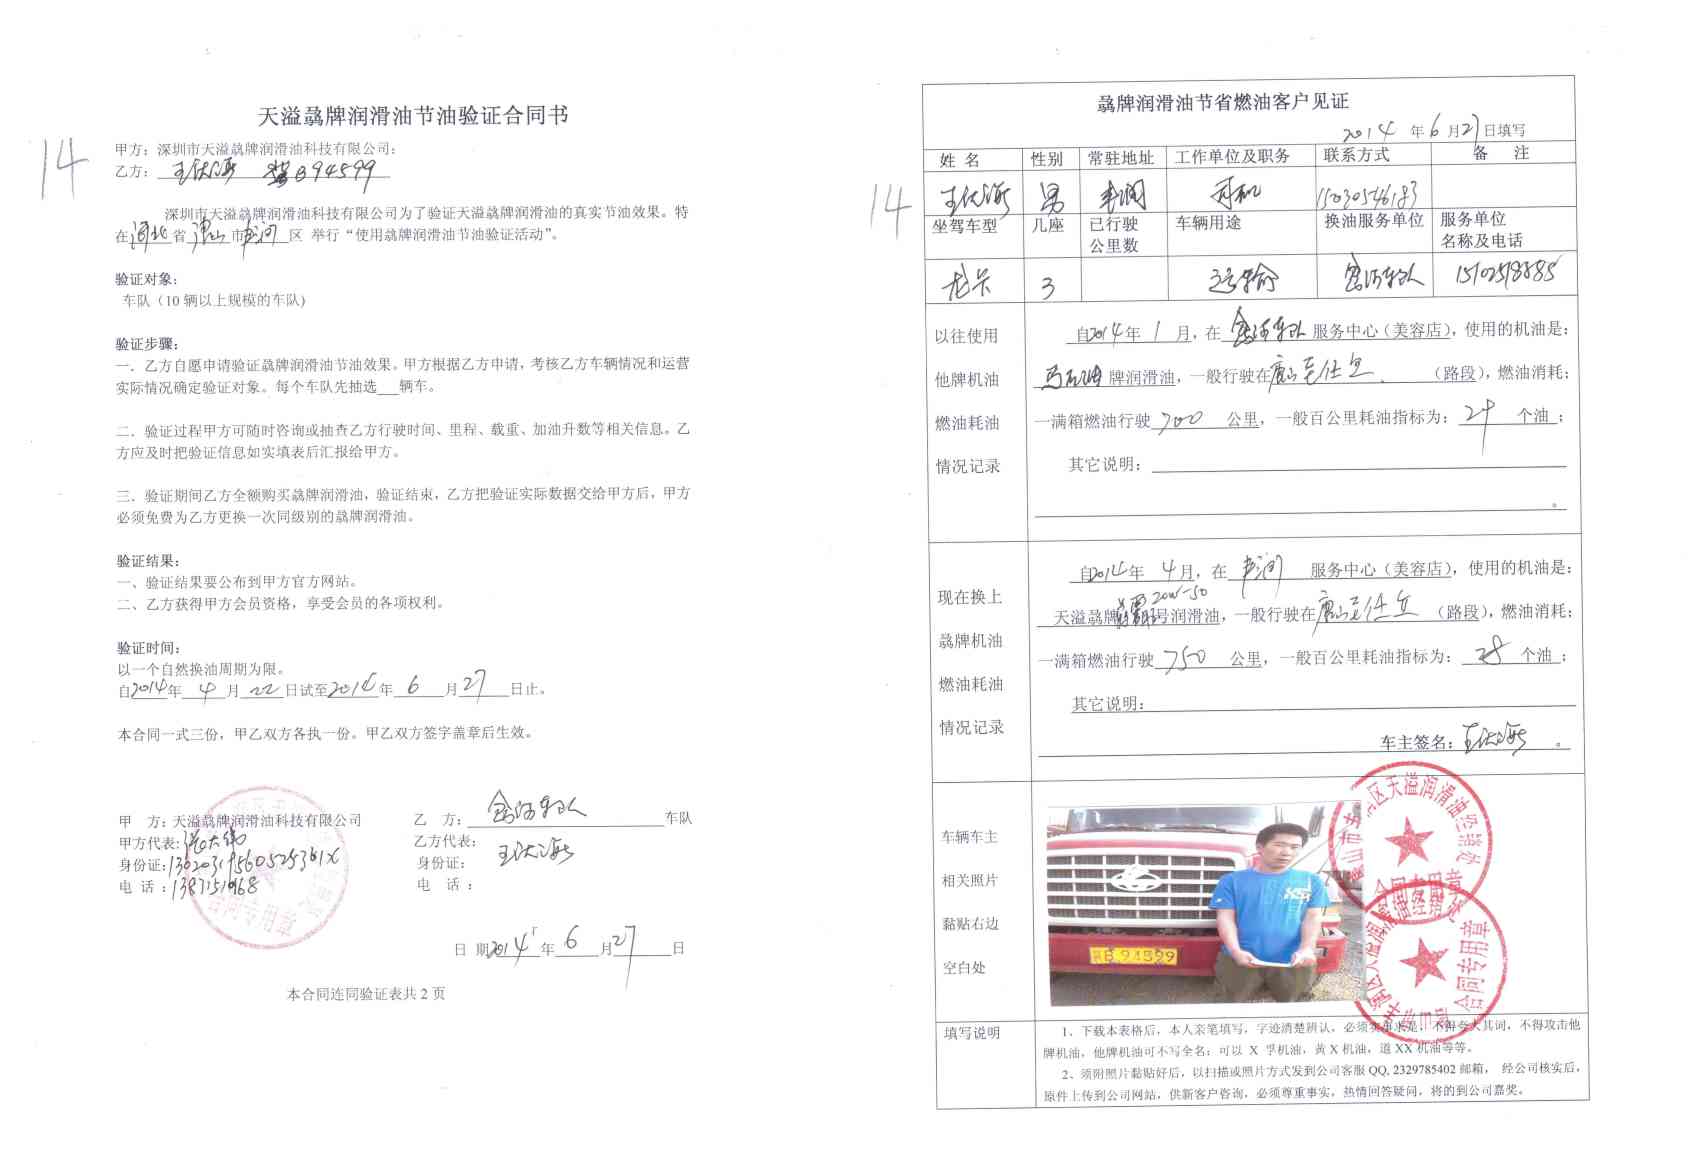 天溢骉牌润滑油节油验证合同书
14
甲方：深圳市天溢骉牌润滑油科技有限公司：
乙方： B94599
深圳市天溢骉牌润滑油科技有限公司为了验证天溢骉牌润滑油的真实节油效果。特
在河北省唐山市丰润区 举行“使用骉牌润滑油节油验证活动”。
验证对象：
车队（10 辆以上规模的车队)
验证步骤：
一．乙方自愿申请验证骉牌润滑油节油效果。甲方根据乙方申请，考核乙方车辆情况和运营
实际情况确定验证对象。每个车队先抽选___辆车。
二．验证过程甲方可随时咨询或抽查乙方行驶时间、里程、载重、加油升数等相关信息。乙
方应及时把验证信息如实填表后汇报给甲方。
三．验证期间乙方全额购买骉牌润滑油，验证结束，乙方把验证实际数据交给甲方后，甲方
必须免费为乙方更换一次同级别的骉牌润滑油。
验证结果：
一、验证结果要公布到甲方官方网站。
二、乙方获得甲方会员资格，享受会员的各项权利。
验证时间：
以一个自然换油周期为限。
自2014年 4 月 22 日试至2014年 6 月27日止。
本合同一式三份，甲乙双方各执一份。甲乙双方签字盖章后生效。
甲 方：天溢骉牌润滑油科技有限公司
甲方代表：
身份证：
电 话：
合同专用章
乙 方： 车队
乙方代表：
身份证：
电 话：
日 期2014年 6 月27日
本合同连同验证表共 2 页
骉牌润滑油节省燃油客户见证
2014 年 6 月27日填写
14
姓 名 性别 常驻地址 工作单位及职务 联系方式 备 注
男 丰润 司机 15030546183
坐驾车型 几座 已行驶公里数 车辆用途 换油服务单位 服务单位名称及电话
3 运输
以往使用他牌机油燃油耗油情况记录
自2014年 1 月，在 服务中心（美容店），使用的机油是：
牌润滑油，一般行驶在 （路段），燃油消耗：
一满箱燃油行驶 700 公里，一般百公里耗油指标为： 29 个油；
其它说明：
现在换上骉牌机油燃油耗油情况记录
自2014年 4月，在 丰润 服务中心（美容店），使用的机油是：
20W-50
天溢骉牌 号润滑油，一般行驶在 （路段），燃油消耗：
一满箱燃油行驶 750 公里，一般百公里耗油指标为： 28 个油；
其它说明：
车主签名：
车辆车主相关照片黏贴右边空白处
B·94599
合同专用章
合同专用章
填写说明
1、下载本表格后，本人亲笔填写，字迹清楚辨认，必须实事求是，不得夸大其词，不得攻击他
牌机油，他牌机油可不写全名；可以 X 孚机油，黄 X 机油，道 XX 机油等等。
2、须附照片黏贴好后，以扫描或照片方式发到公司客服 QQ, 2329785402 邮箱， 经公司核实后，
原件上传到公司网站，供新客户咨询，必须尊重事实，热情回答疑问，将的到公司嘉奖。